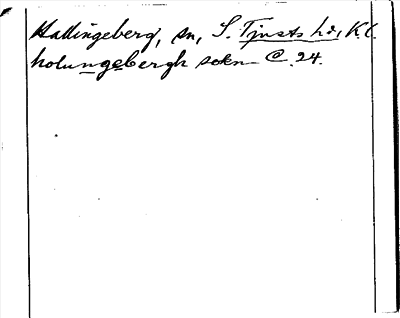 Hallingeberg, sn, S. Tjusts hd, K.l.
holungebergh sokn @ 24.